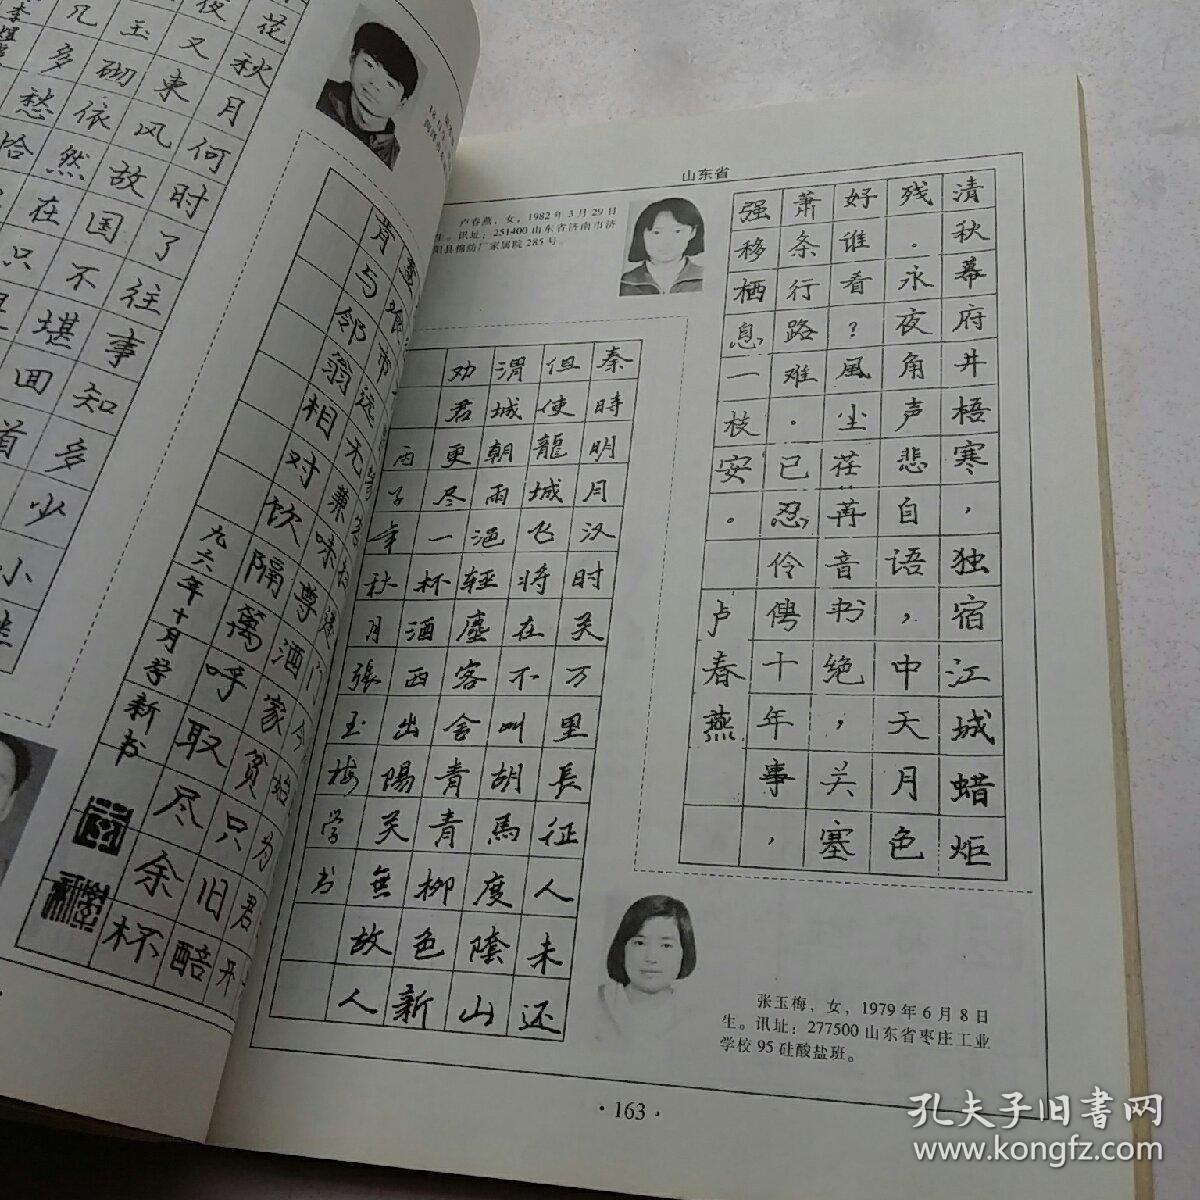 几多愁恰
玉砌依然在只
夜又東风故国不堪回首
花秋月何时了往事知多少小
无兼味尊酒家贫只旧醅
肯与邻翁相对饮隔萬呼取尽余杯
九六年十月学新书
山东省
卢春燕，女，1982年3月29日
生。讯址：251400山东省济南市济
阳县棉纺厂家属院285号。
清秋幕府井梧寒，独宿江城蜡炬
残.永夜角声悲自语，中天月色
好谁看？風尘荏苒音书绝，关塞
萧条行路难.已忍伶俜十年事，
强移栖息一枝安。卢春燕
秦時明月汉时关万里長征人未还
但使龍城飞将在不叫胡馬度陰山
渭城朝雨浥轻塵客舍青青柳色新
劝君更尽一杯酒西出陽关無故人
丙子年秋月張玉梅学书
张玉梅，女，1979年6月8日
生。讯址：277500山东省枣庄工业
学校95硅酸盐班。
·163·
孔夫子旧書网
www.kongfz.com